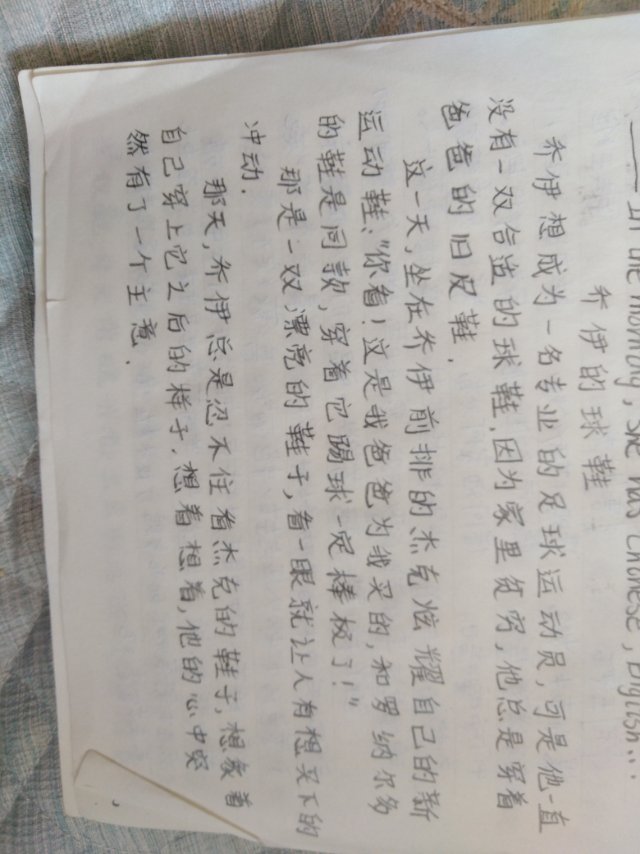 In the morning, she has Chinese, English...
乔伊的球鞋
乔伊想成为一名专业的足球运动员,可是他一直
没有一双合适的球鞋,因为家里贫穷,他总是穿着
爸爸的旧皮鞋.
这一天,坐在乔伊前排的杰克炫耀自己的新
运动鞋、"你看!这是我爸爸为我买的,和罗纳尔多
的鞋是同款,穿着它踢球一定棒极了!"
那是一双漂亮的鞋子,看一眼就让人有想买下的
冲动.
那天,乔伊总是忍不住看杰克的鞋子,想象着
自己穿上它之后的样子.想着想着,他的心中突
然有了一个主意.